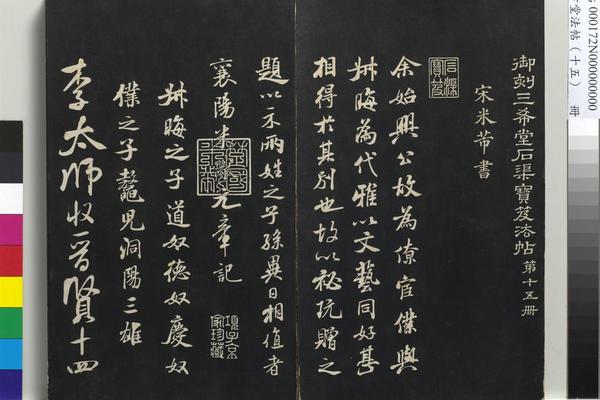 御刻三希堂石渠寶笈法帖 第十五冊
宋米芾書
余始興公故為僚宦僕與
叔晦為代雅以文藝同好甚
相得於其別也故以祕玩贈之
題以不兩姓之子孫異日相值者
襄陽米黻元章記
叔晦之子道奴德奴慶奴
僕之子鼇兒洞陽三雄
李太師收晉賢十四
石渠寶笈
項子京家珍藏
000172N000000000
堂法帖(十五) 冊